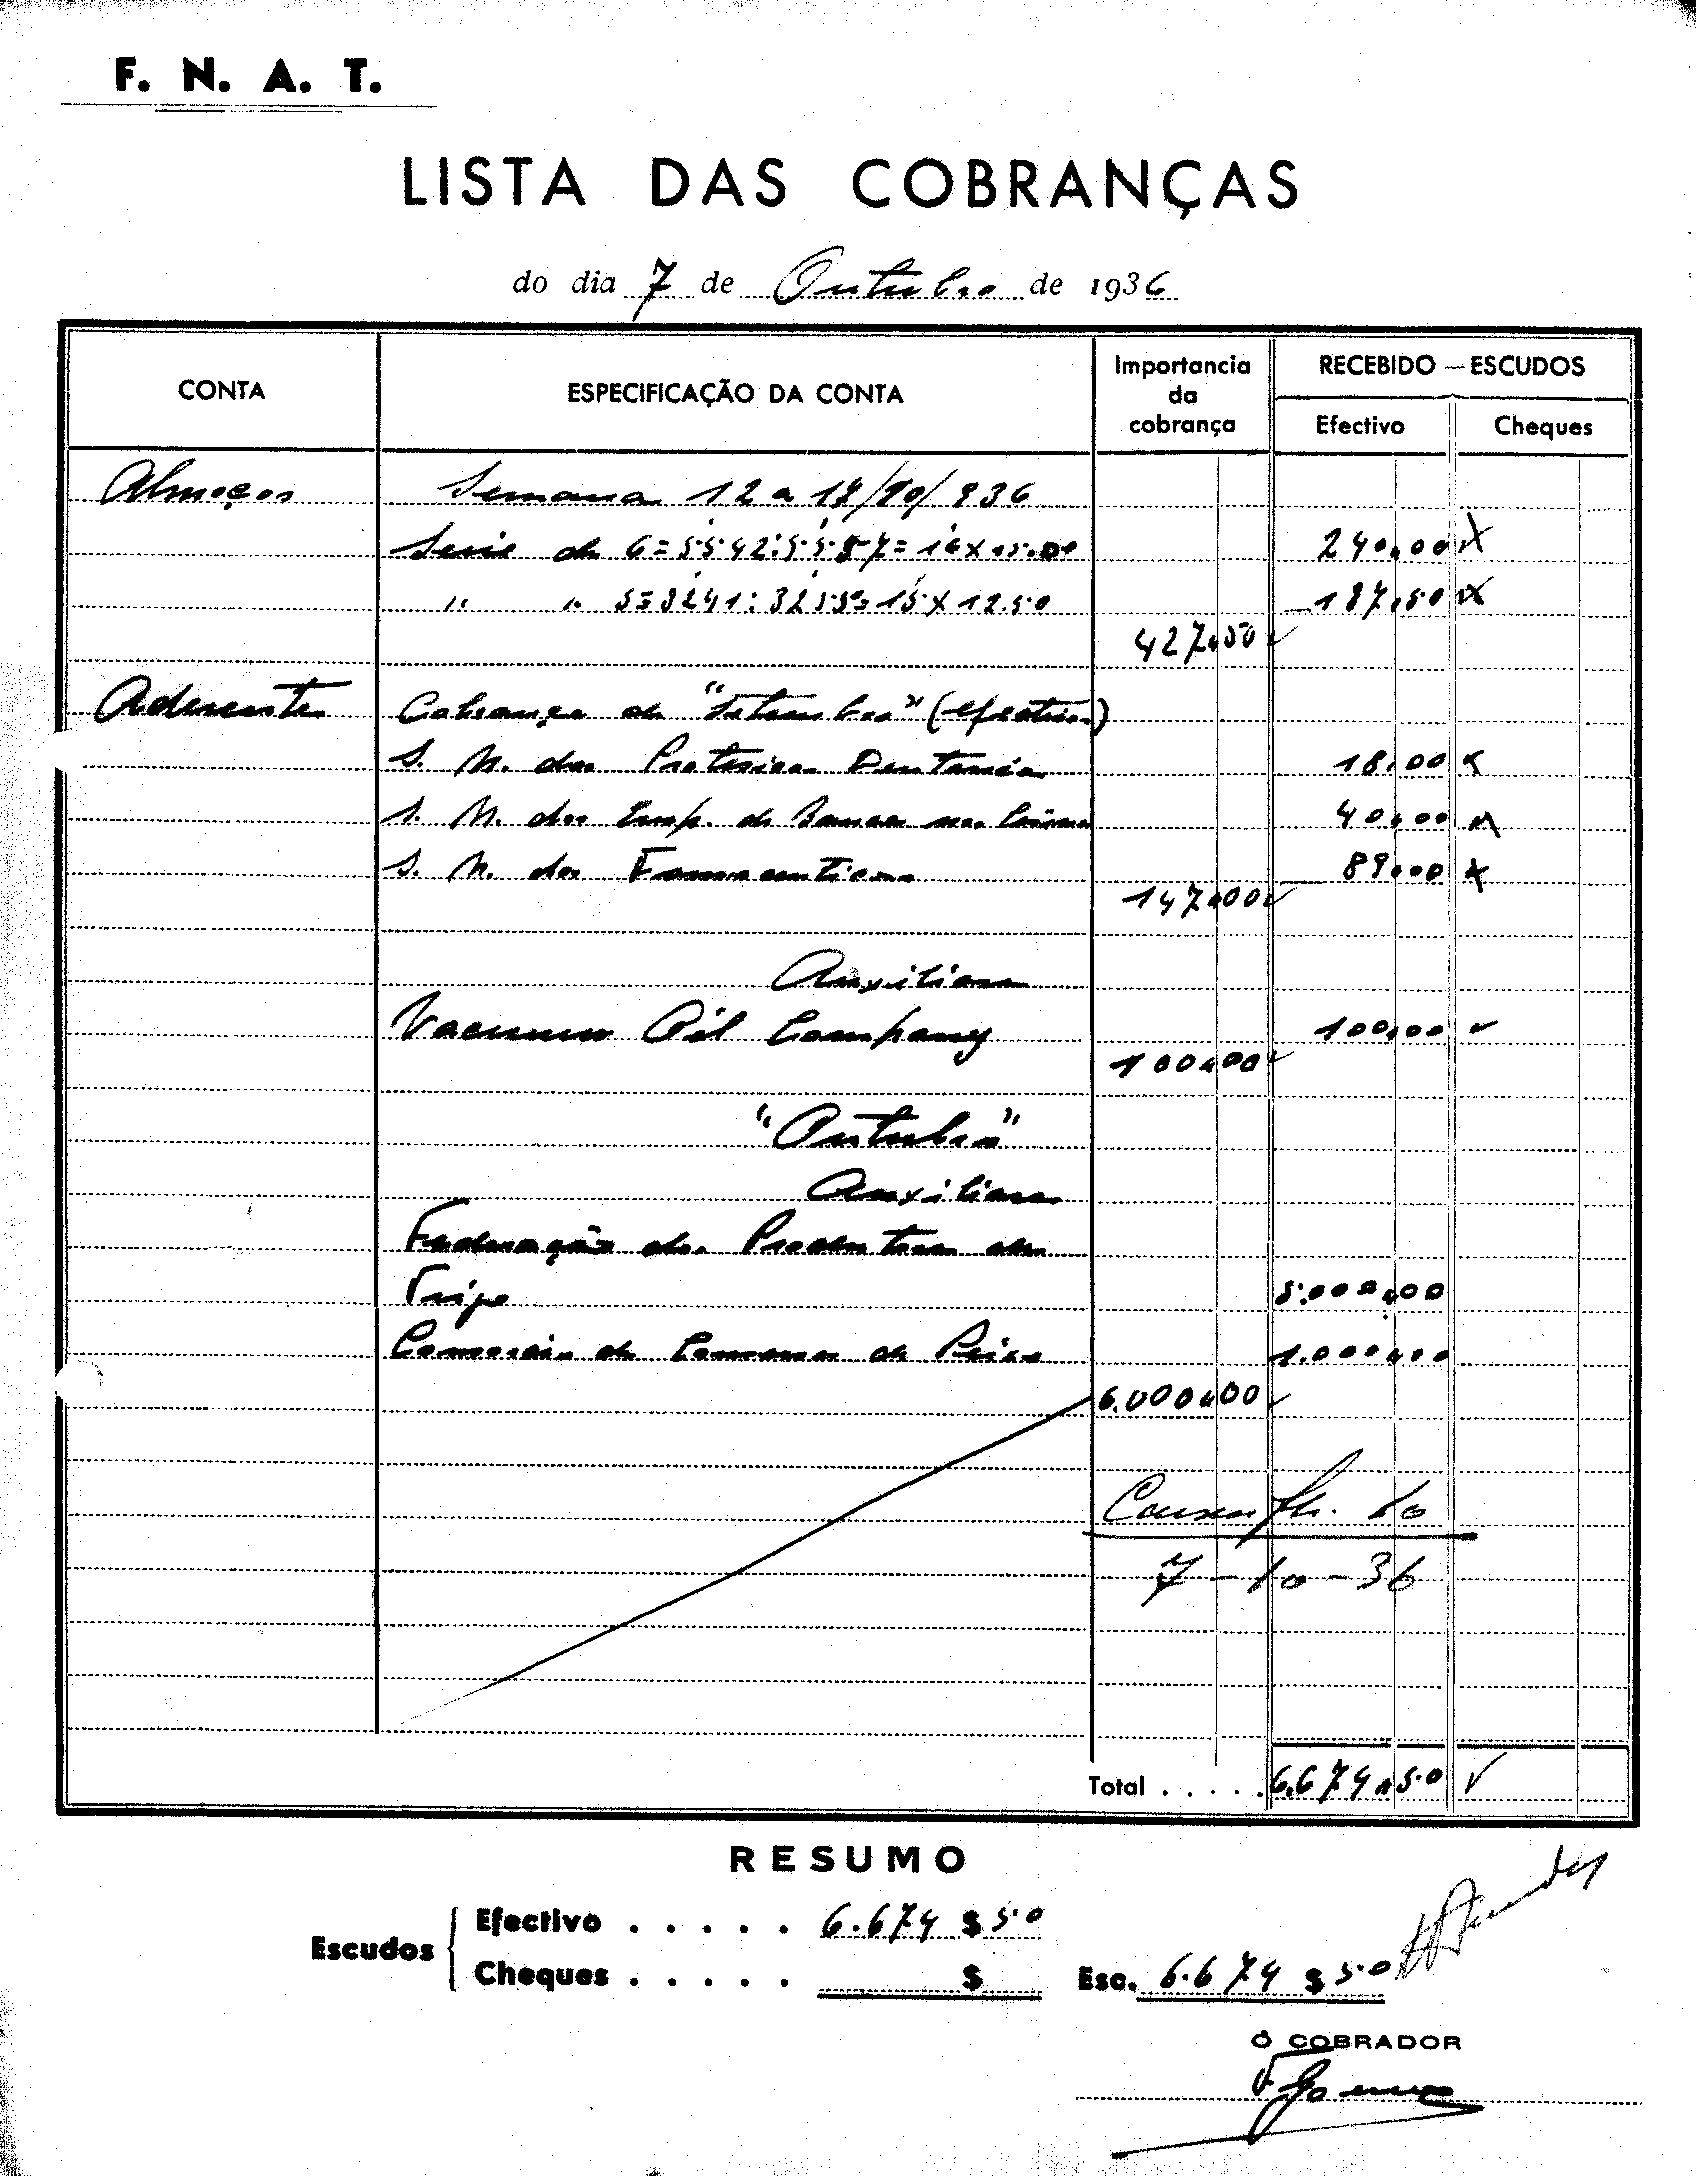 F. N. A. T.
LISTA DAS COBRANÇAS
do dia 7 de Outubro de 1936
CONTA
ESPECIFICAÇÃO DA CONTA
Importancia da cobrança
RECEBIDO — ESCUDOS
Efectivo
Cheques
Almoços Semana 12 a 17/10/936
Serie de 6= 240,00
" " 187,50
427,50
Aderente Cobrança de "Setembro" (efectivos)
S. N. dos Protesicos Dentarios 18,00
S. N. dos Emp. de Banca nas 40,00
S. N. dos Farmaceuticos 89,00
147,00
Auxiliares
Vacuum Oil Company 100,00
100,00
"Outubro"
Auxiliares
Federação dos Produtores de
Trigo 5.000,00
de 1.000,00
6.000,00
7-10-36
Total . . . . . 6.674,50
RESUMO
Escudos
Efectivo . . . . . 6.674 $ 50
Cheques . . . . . $
Esc. 6.674 $ 50
O COBRADOR